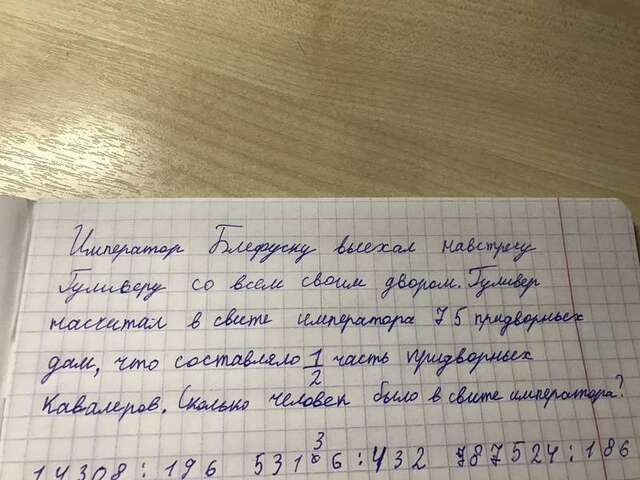 Император Блефуску выехал навстречу
Гулливеру со всем своим двором. Гулливер
насчитал в свите императора 75 придворных
дам, что составляло 1/2 часть придворных
кавалеров. Сколько человек было в свите императора?
14308 : 196 531 6 : 432 787524 : 186